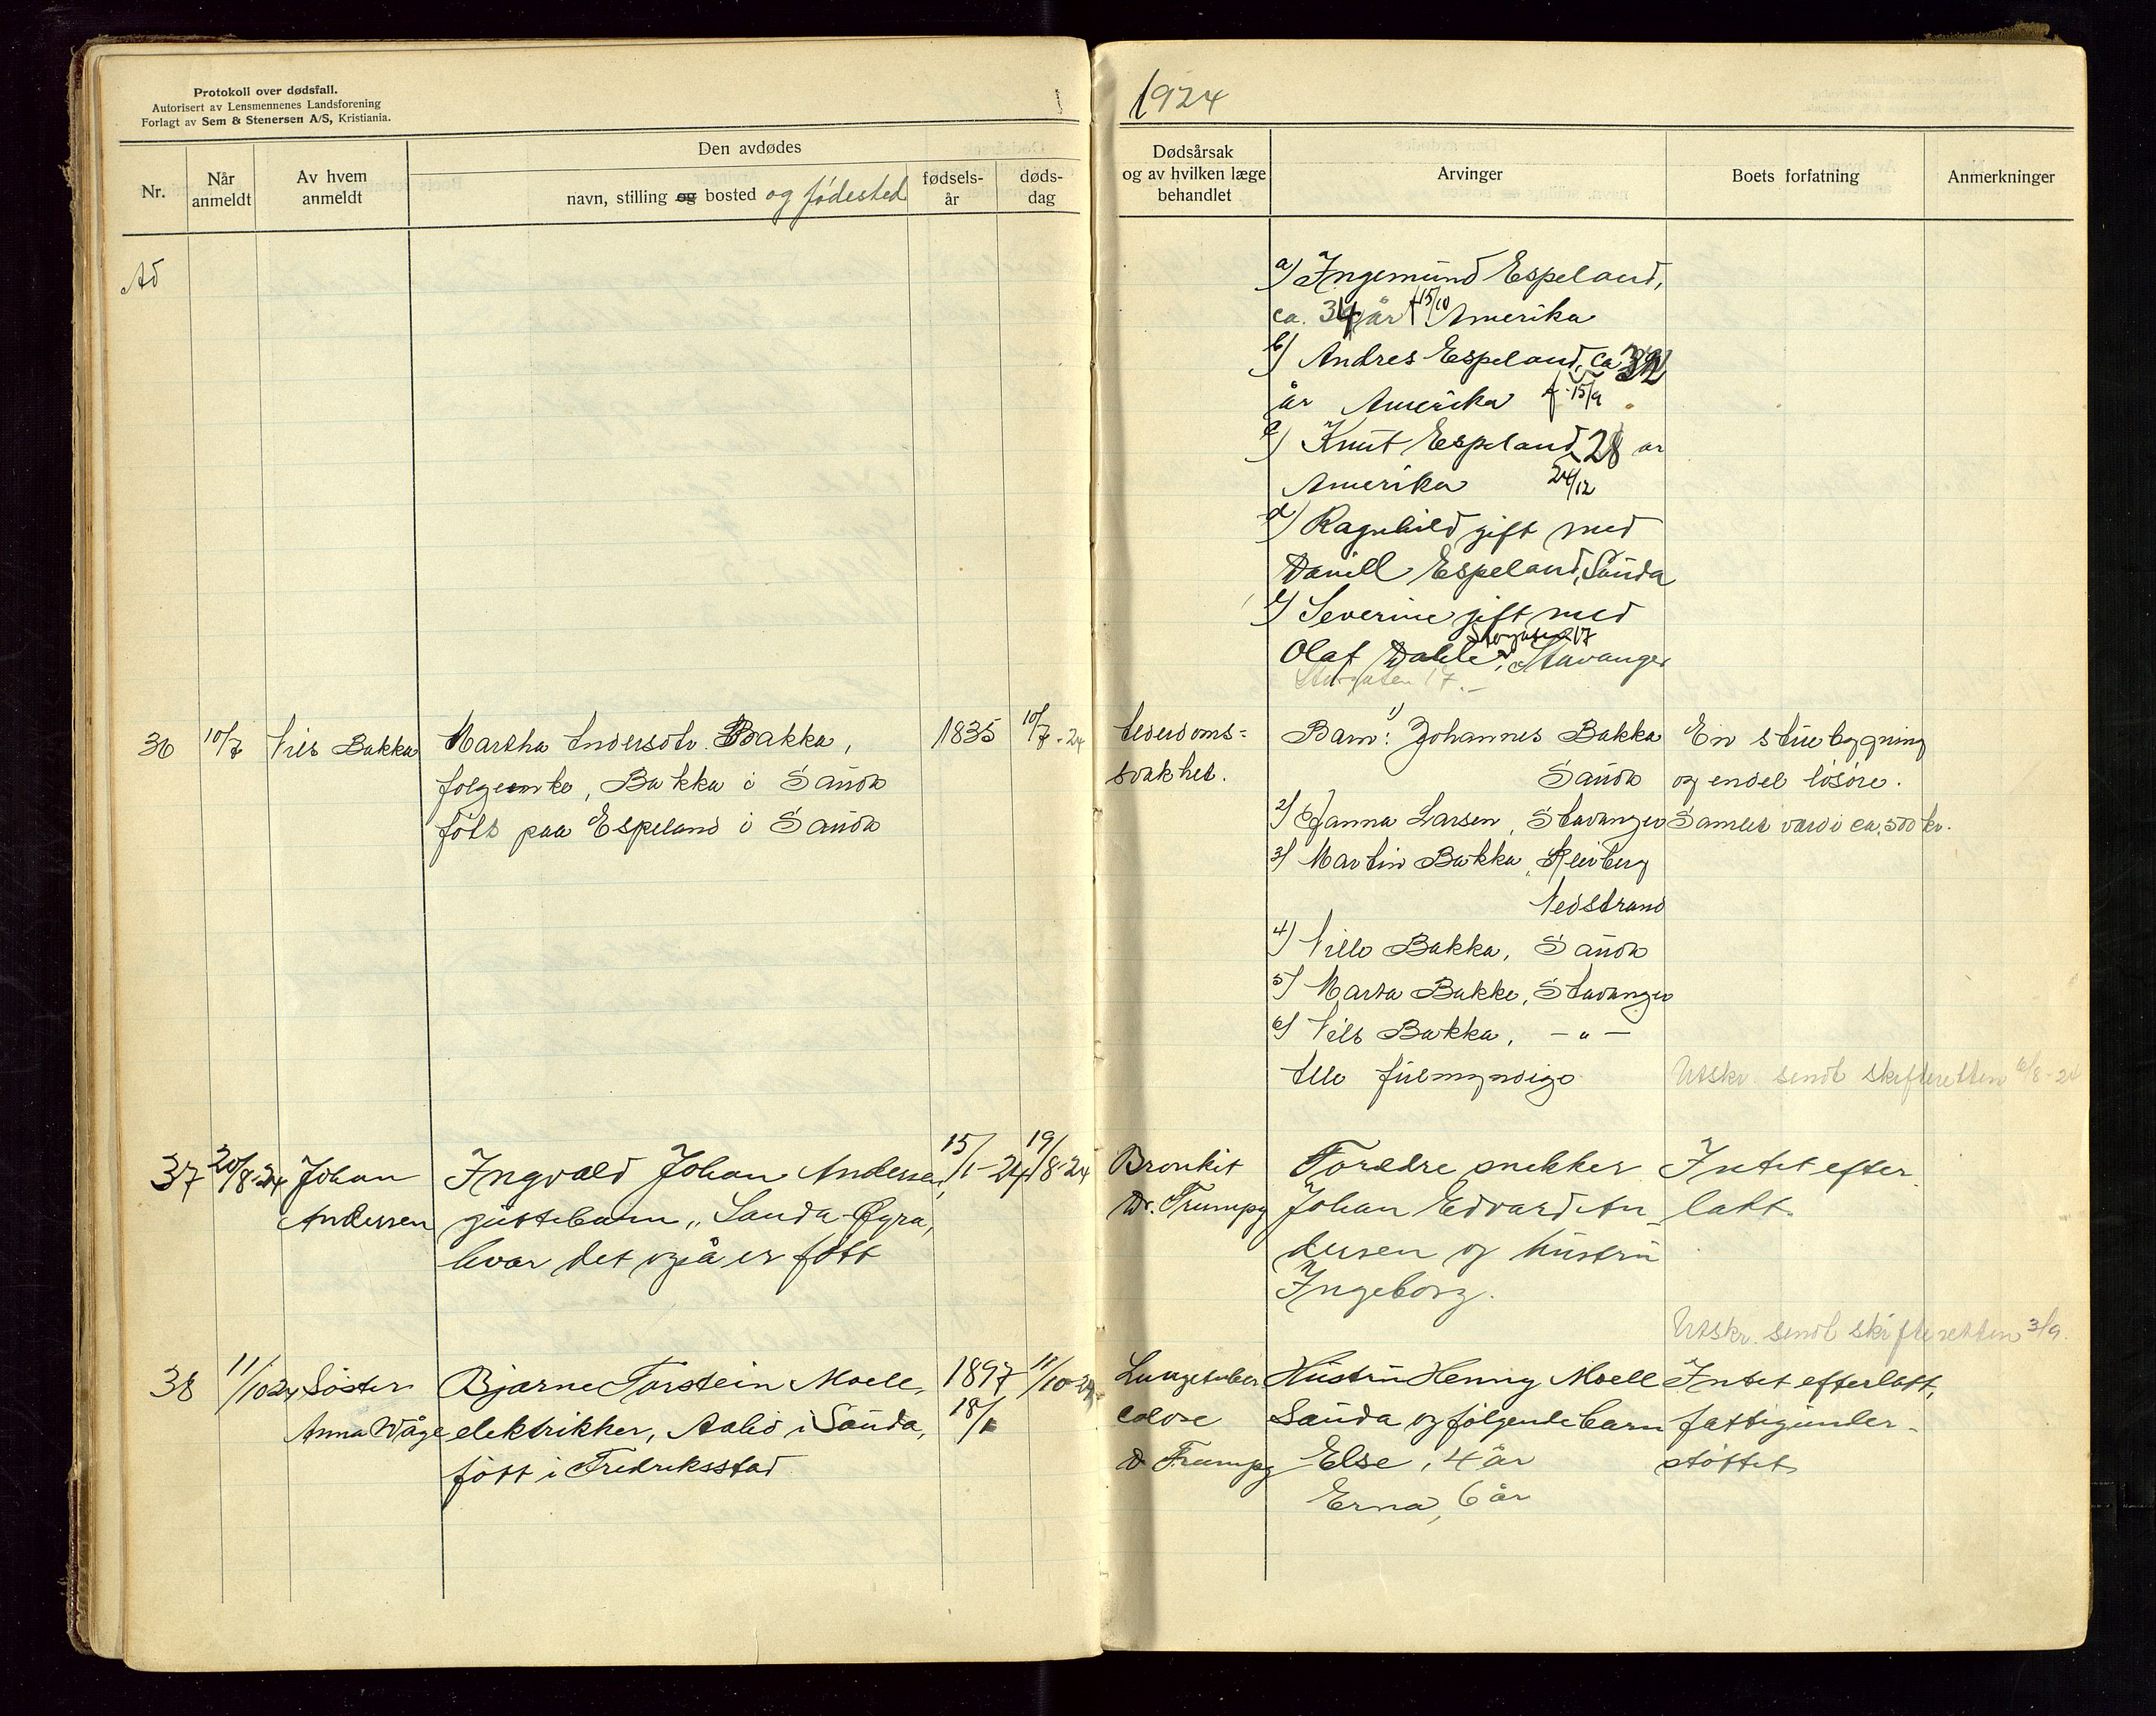 Protokoll over dødsfall.
Autorisert av Lensmennenes Landsforening
Forlagt av Sem & Stenersen A/S, Kristiania.
1924
Nr.
Når anmeldt
Av hvem anmeldt
Den avdødes
navn, stilling og bosted og fødested
fødsels-år
døds-dag
Dødsårsak
og av hvilken læge
behandlet
Arvinger
Boets forfatning
Anmerkninger
Ad
a) Ingemund Espeland,
ca. 34 år 15/10 Amerika
b) Andres Espeland, ca 32
år Amerika f. 15/9
c) Knut Espeland 28 år
Amerika 24/12
d) Ragnhild gift med
Daniell Espeland, Sauda
e) Severine gift med
Storgaten 17
Olaf Dahle, Stavanger
Storgaten 17.
36 10/7 Nils Bakka
Martha Andersdtr. Bakka,
folgeenke, Bakka i Sauda
født paa Espeland i Sauda
1835
10/7-24
Alderdoms-
svakhet.
Barn: 1) Johannes Bakka
Sauda
2) Hanna Larsen, Stavanger
3) Martin Bakka, Kleiberg
Nedstrand
4) Nille Bakka, Sauda
5) Marta Bakke, Stavanger
6) Nils Bakka, -"-
Alle fuldmyndige
En stuebygning
og endel løsøre.
Samlet værdi ca. 500 kr.
Utskr. sendt skifteretten 6/8-24
37 20/8-24 Johan
Anderssen
Ingvald Johan Anderssen,
guttebarn, Sauda-Øyra,
hvor det også er født
15/1-24
19/8-24
Bronkit
Dr. Trumpy
Foreldre snekker
Johan Edvard An-
dersen og hustru
Ingeborg.
Intet efter-
latt.
Utskr. sendt skifteretten 3/9.
38 11/10 24 Søster
Anna Våge
Bjarne Torstein Moell,
elektrikker, Aabø i Sauda,
født i Fredriksstad
1897
18/1
11/10-24
Lungetuber-
colose
Dr Trumpy
Hustru Henny Moell
Sauda og følgende barn
Else, 4 år
Erna, 6 år
Intet efterlatt,
fattigunder-
støttet